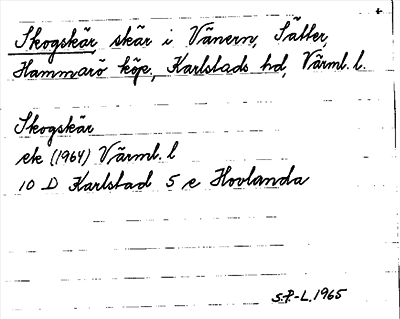 Skogskär, skär i Vänern, Sätter,
Hammarö köp., Karlstads hd, Värml. l.
Skogskär
ek (1964) Värml. l
10 D Karlstad 5 e Hovlanda
S.P.-L. 1965